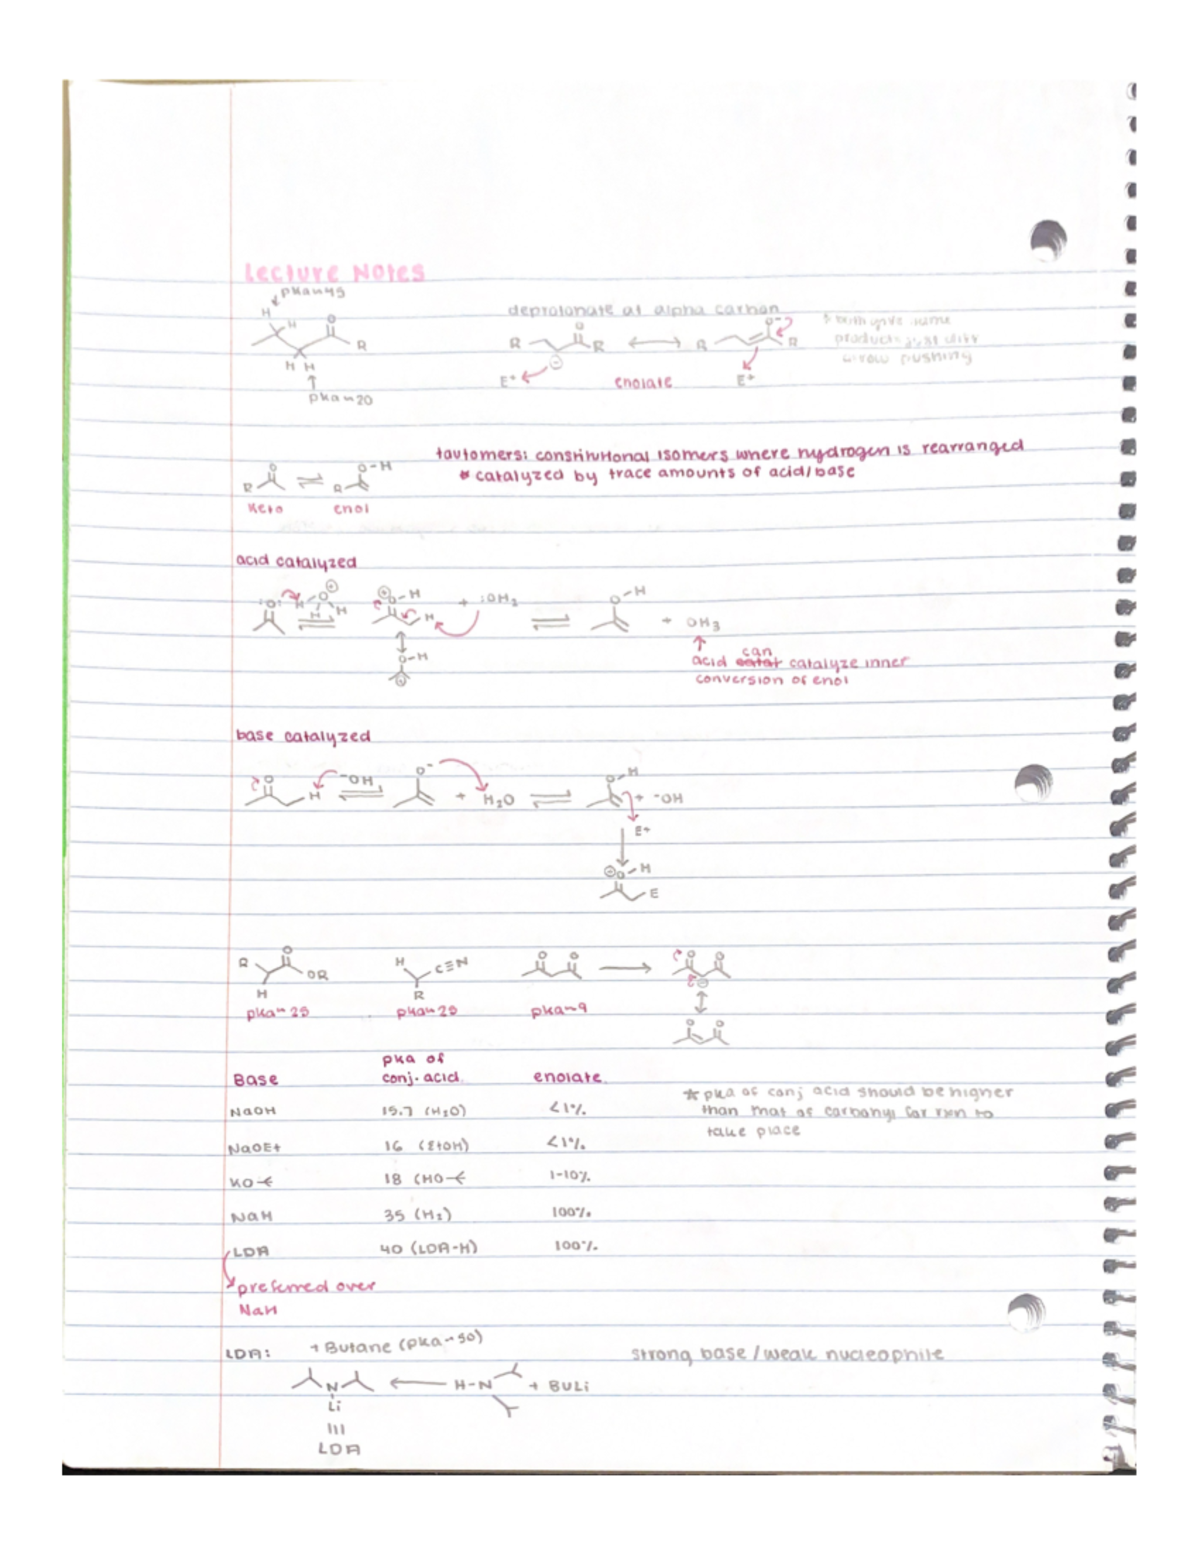 Lecture Notes
pka~45
H
H
O
R
H H
pka~20
deprotonate at alpha carbon
O
R
R
E+
enolate
O-
R
R
E+
* both give same
product, just diff
arrow pushing
tautomers: constitutional isomers where hydrogen is rearranged
* catalyzed by trace amounts of acid/base
O
R
keto
O-H
R
enol
acid catalyzed
:O: H-O⊕ H H
⊕O-H H + :OH2
O-H
+ OH3
O-H
⊕
acid can catalyze inner
conversion of enol
base catalyzed
O H -OH
O- + H2O
O-H + -OH
E+
⊕O-H
E
R O OR H
pka~25
H C≡N R
pka~25
O O
pka~9
O O
⊖
O O
Base pka of conj. acid enolate
NaOH 15.7 (H2O) <1%
NaOEt 16 (EtOH) <1%
KO 18 (HO 1-10%
NaH 35 (H2) 100%
LDA 40 (LDA-H) 100%
* pka of conj acid should be higher
than that of carbonyl for rxn to
take place
preferred over
NaH
LDA: + Butane (pka~50)
strong base / weak nucleophile
N Li ← H-N + BuLi
LDA